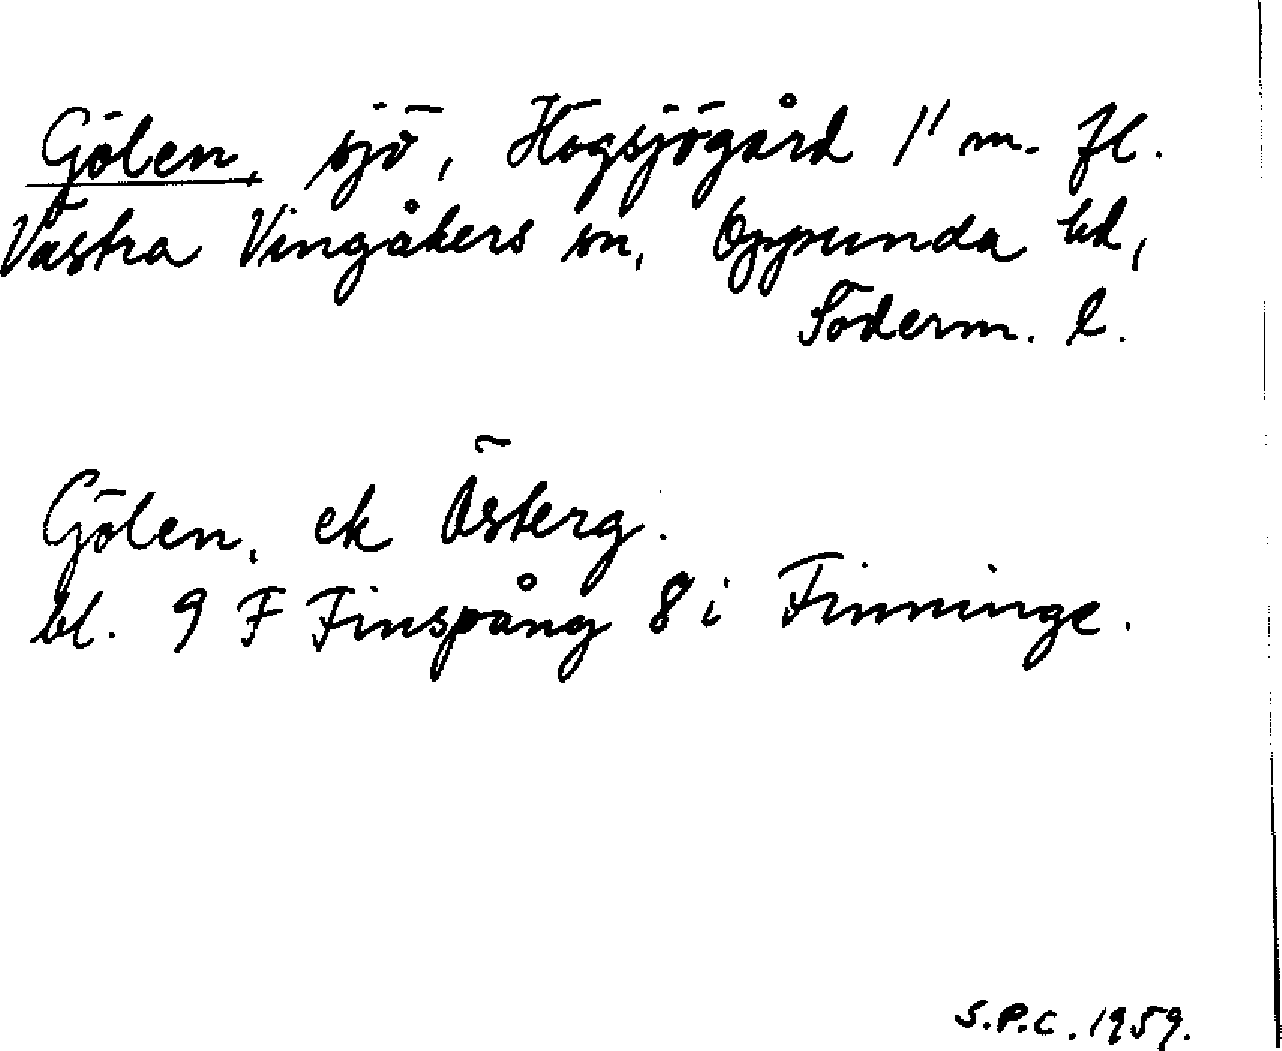 Gölen, sjö, Högsjögård 1¹ m. fl.
Västra Vingåkers sn, Oppunda hd,
Söderm. l.
Gölen, ek Österg.
bl. 9 F Finspång 8 i Finninge.
S.P.C. 1959.